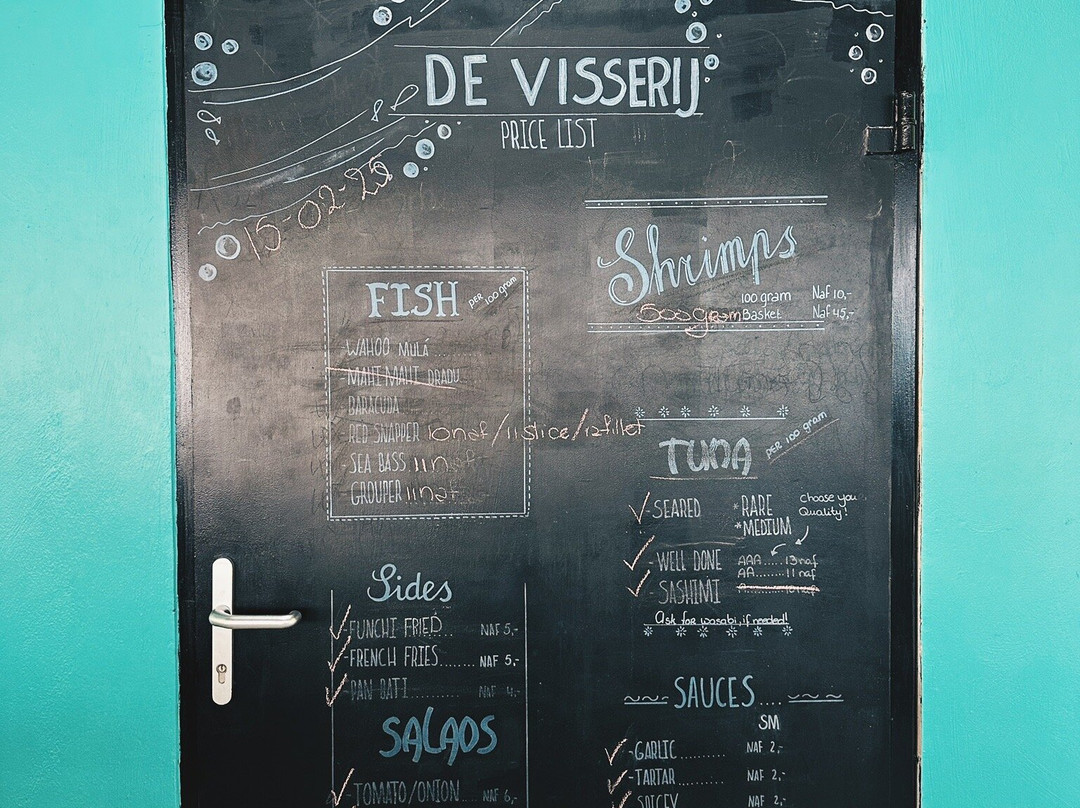 DE VISSERIJ
PRICE LIST
15-02-25
FISH per 100 gram
-WAHOO MULÁ
-MAHI-MAHI DRADU
-BARACUDA
-RED SNAPPER 10naf/11slice/12fillet
-SEA BASS 11naf
-GROUPER 11naf
Sides
-FUNCHI FRIED... NAF 5,-
-FRENCH FRIES........ NAF 5,-
-PAN BATI........... NAF 4,-
SALADS
-TOMATO/ONION.... NAF 6,-
Shrimps
100 gram Naf 10,-
500gram Basket Naf 45,-
TUNA per 100 gram
-SEARED *RARE
*MEDIUM
choose you
Quality!
-WELL DONE AAA......13naf
AA........11naf
-SASHIMI
Ask for wasabi, if needed!
SAUCES....
SM
-GARLIC.......... NAF 2,-
-TARTAR.......... NAF 2,-
-SPICEY NAF 2,-